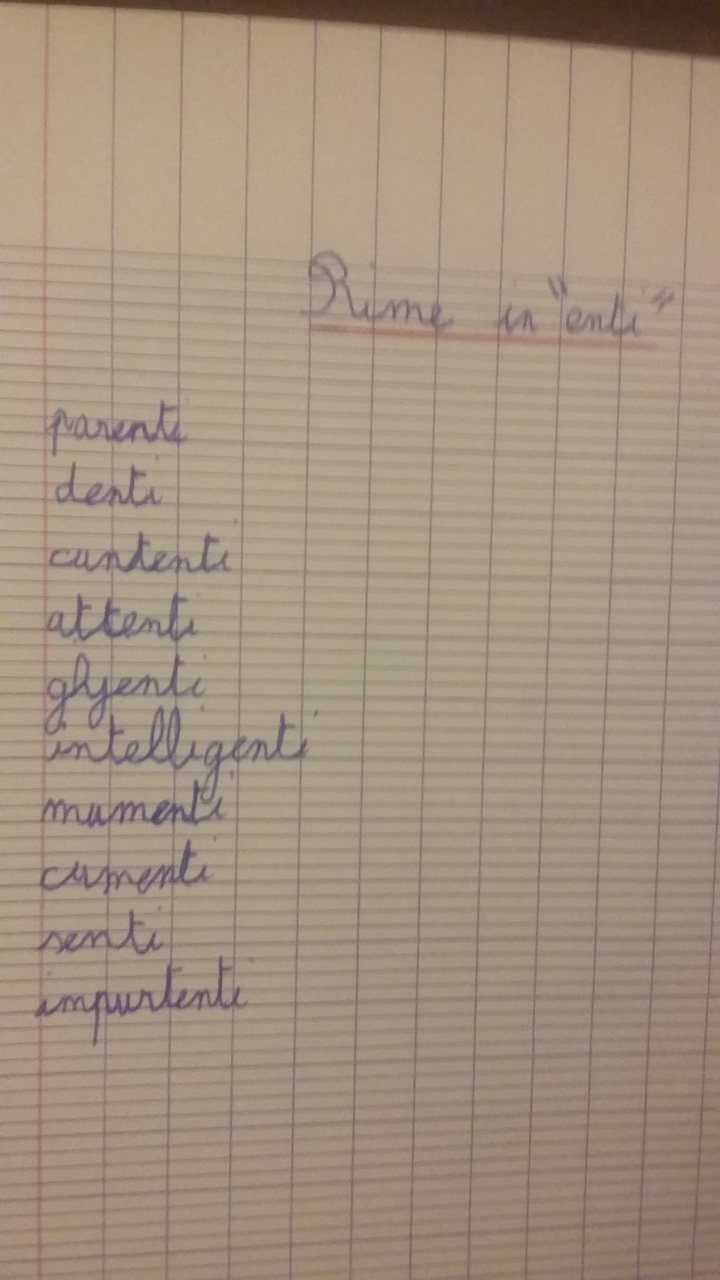 Rime in "enti"
parenti
denti
cuntenti
attenti
ghjenti
intelligenti
mumenti
cumenti
senti
impurtenti